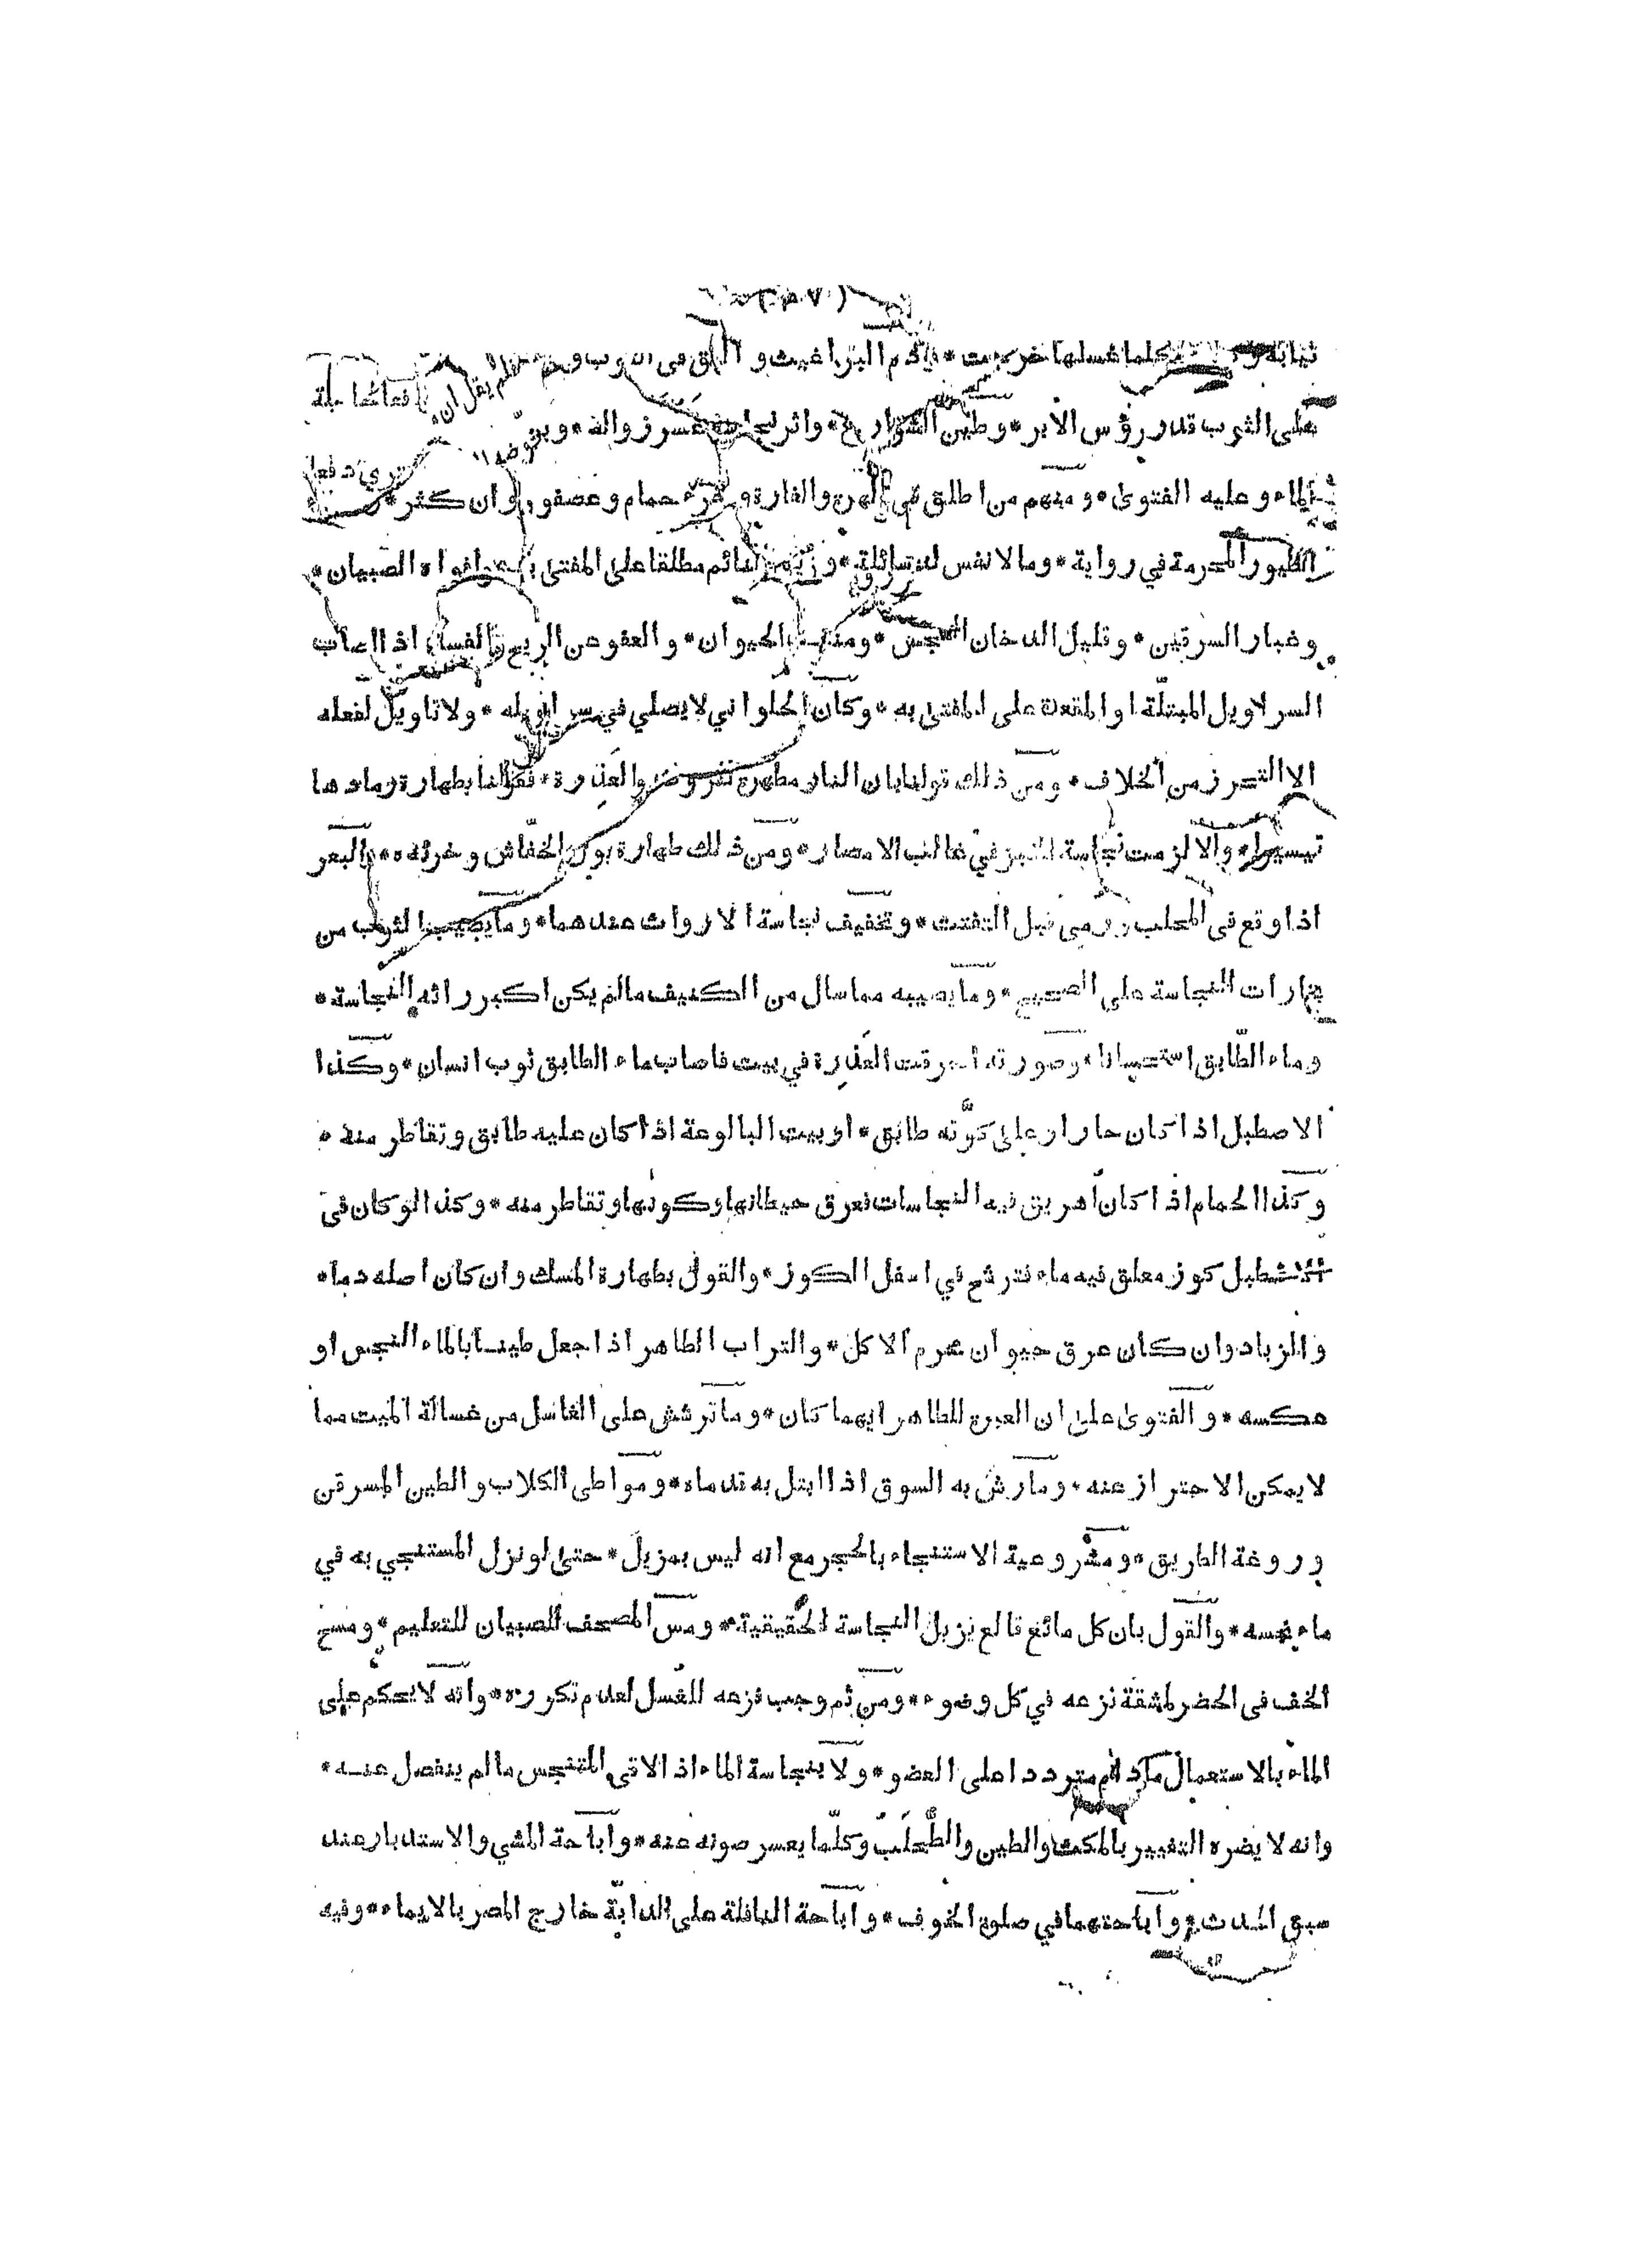 (٧٠)
ثيابه وكلما غسلها خرجت * ودم البراغيث والبق فى الثوب وان
على الثوب قدر رؤس الابر * وطين الشوارع * واثر نجاسة عسر زواله * وبول
الماء وعليه الفتوى * ومنهم من اطلق في الهرة والفارة وخرء حمام وعصفور وان كثر *
الطيور المحرمة في رواية * وما لا نفس له سائلة * وريق النائم مطلقا على المفتى به وافواه الصبيان *
وغبار السرقين * وقليل الدخان النجس * ومنفذ الحيوان * والعفو عن الريح والفساء اذا اصاب
السراويل المبتلة او المقعدة على المفتى به * وكان الحلواني لا يصلي في سراويله * ولا تاويل لفعله
الا التحرز من الخلاف * ومن ذلك قولنا بان النار مطهرة للروث والعذرة * فقولنا بطهارة رمادها
تيسيرا * والا لزمت نجاسة الخبز في غالب الامصار * ومن ذلك طهارة بول الخفاش وخرئه * والبعر
اذا وقع فى المحلب ورمى قبل التفتت * وتخفيف نجاسة الارواث عندهما * وما يصيب الثوب من
بخارات النجاسة على الصحيح * وما يصيبه مما سال من الكنيف ما لم يكن اكبر رائه النجاسة *
وماء الطابق استحسانا * وصورته احرقت العذرة في بيت فاصاب ماء الطابق ثوب انسان * وكذا
الاصطبل اذا كان حارا وعلى كوته طابق * او بيت البالوعة اذا كان عليه طابق وتقاطر منه *
وكذا الحمام اذا كان اهريق فيه النجاسات فعرق حيطانها وكوتها وتقاطر منه * وكذا لو كان فى
الاصطبل كوز معلق فيه ماء فترشح في اسفل الكوز * والقول بطهارة المسك وان كان اصله دما *
والزباد وان كان عرق حيوان محرم الاكل * والتراب الطاهر اذا جعل طينا بالماء النجس او
عكسه * والفتوى على ان العبرة للطاهر ايهما كان * وما ترشش على الغاسل من غسالة الميت مما
لا يمكن الاحتراز عنه * وما رش به السوق اذا ابتل به قدماه * ومواطى الكلاب والطين المسرقن
وروغة الطريق * ومشروعية الاستنجاء بالحجر مع انه ليس بمزيل * حتى لو نزل المستنجي به في
ماء نجسه * والقول بان كل مائع قالع يزيل النجاسة الحقيقية * ومس المصحف للصبيان للتعليم * ومسح
الخف فى الحضر لمشقة نزعه في كل وضوء * ومن ثم وجب نزعه للغسل لعدم تكرره * وانه لا يحكم على
الماء بالاستعمال ما دام مترددا على العضو * ولا بنجاسة الماء اذا لاقى المتنجس ما لم ينفصل عنه *
وانه لا يضره التغيير بالمكث والطين والطحلب وكلما يعسر صونه عنه * واباحة المشي والاستدبار عند
سبق الحدث * واباحتهما في صلوة الخوف * واباحة النافلة على الدابة خارج المصر بالايماء * وفيه